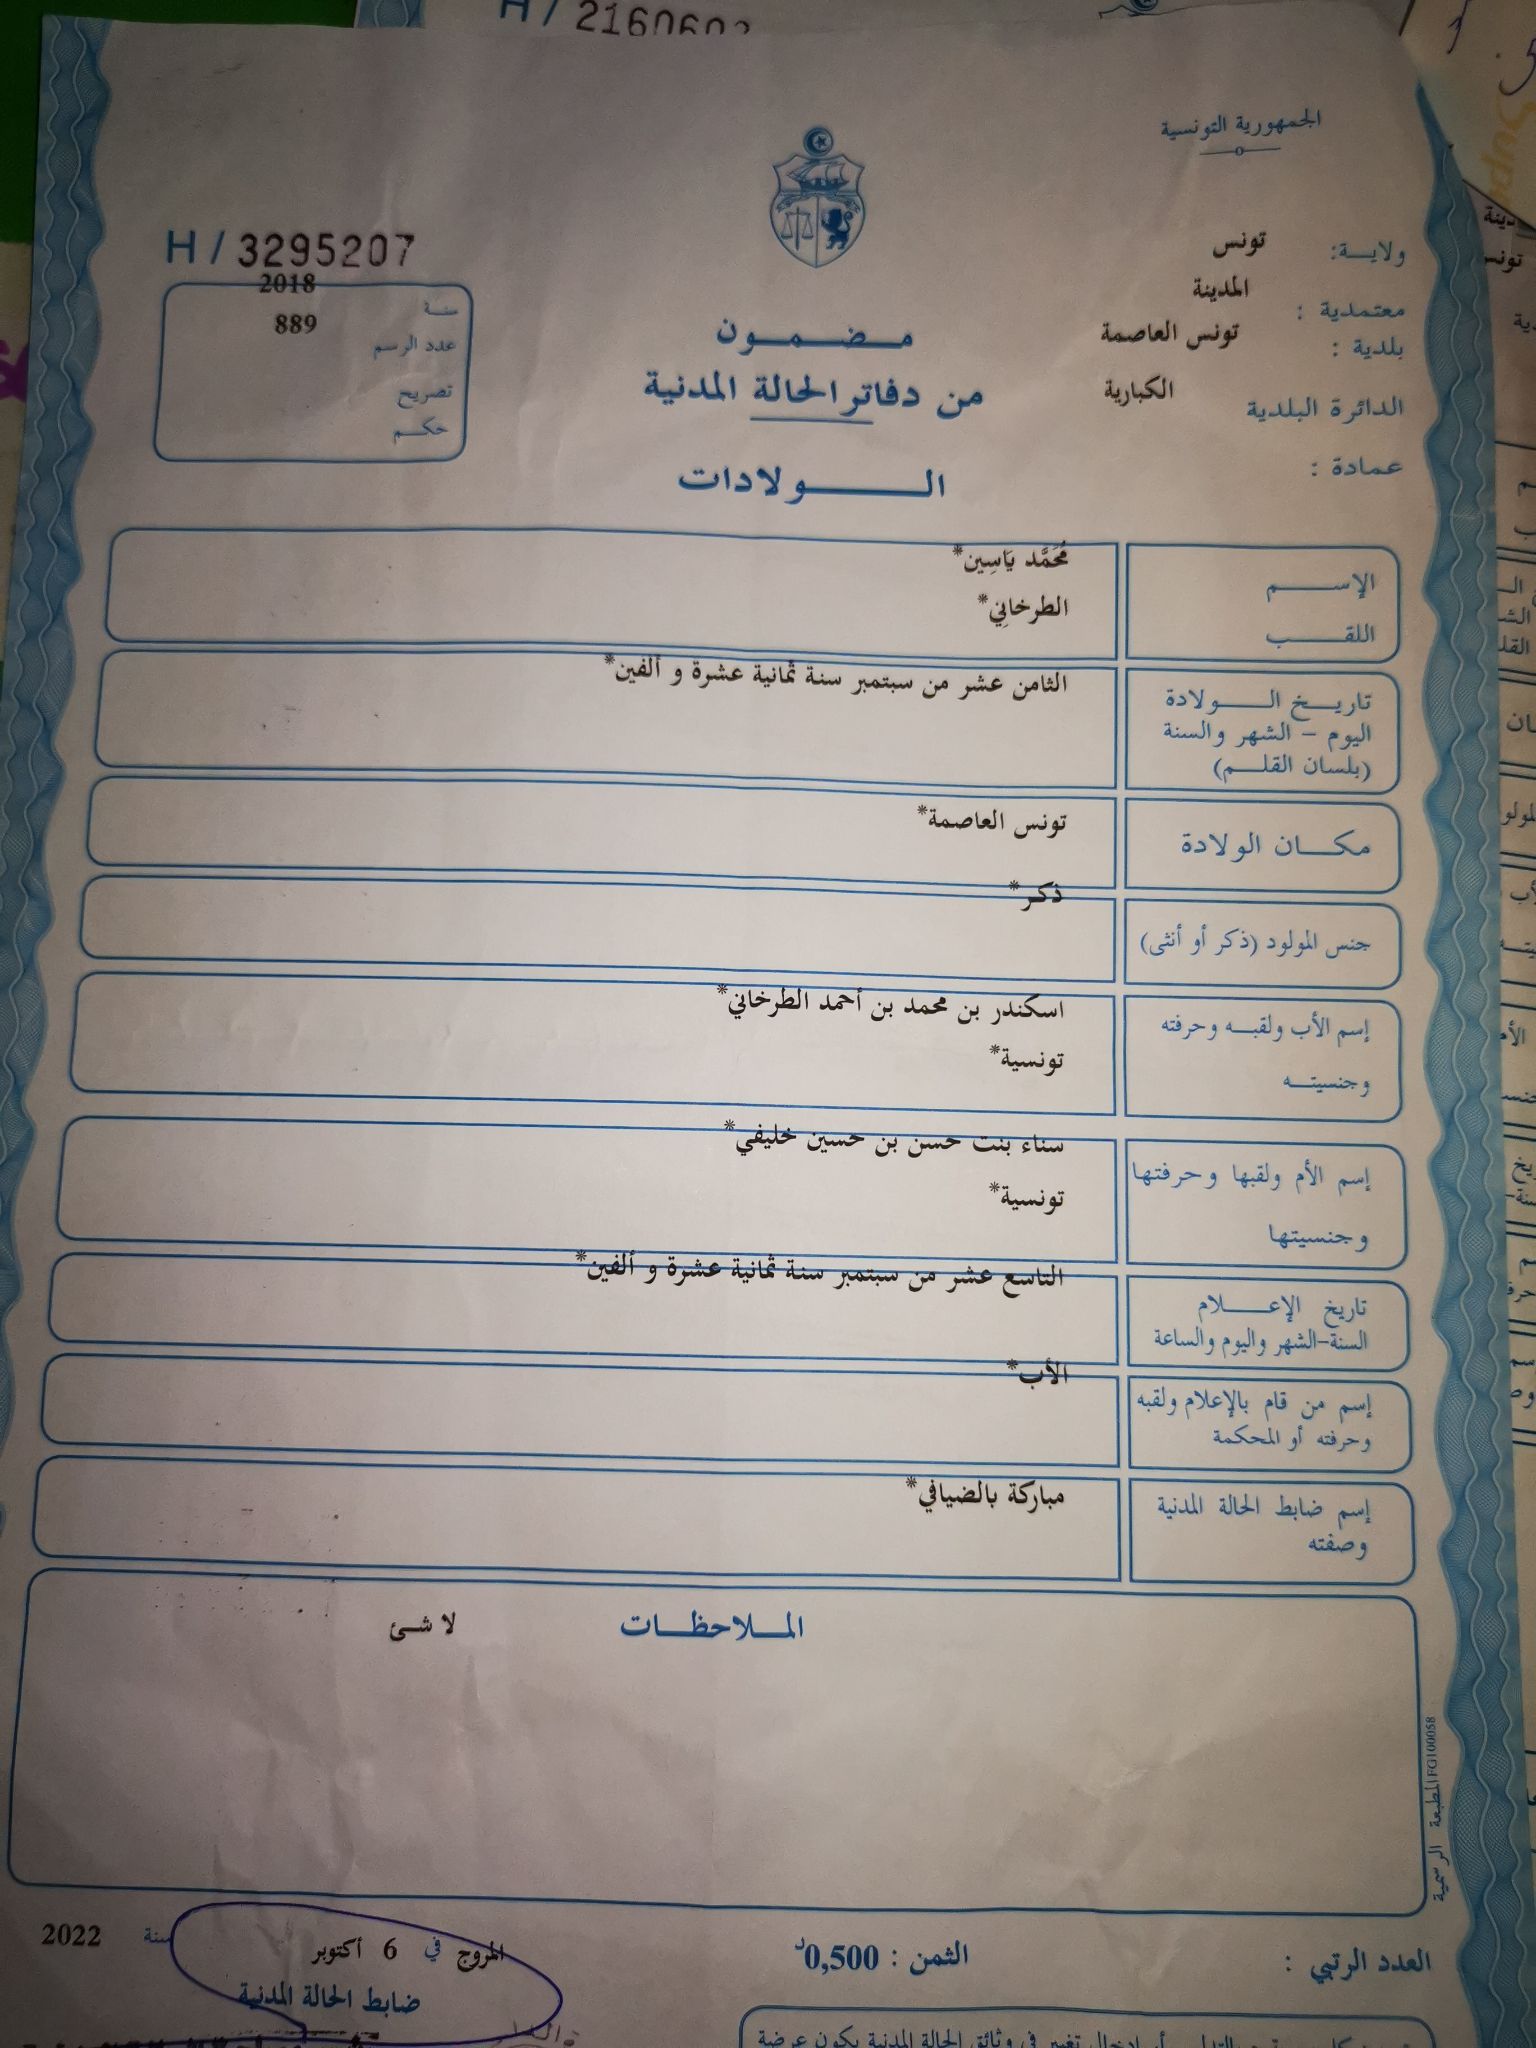 H / 2160602
الجمهورية التونسية
ولايـــة: تونس
معتمدية : المدينة
بلدية : تونس العاصمة
الدائرة البلدية الكبارية
عمادة :
H / 3295207
سنـة 2018
عدد الرسم 889
تصريح
حكــم
مـــضـــمـــون
من دفاتر الحالة المدنية
الـــــــولادات
الإســــم مُحَمَّد يَاسِين*
اللقــــب الطرخاني*
تاريـــخ الـــــولادة الثامن عشر من سبتمبر سنة ثمانية عشرة و ألفين*
اليوم – الشهر والسنة
(بلسان القلـــم)
مكـــان الولادة تونس العاصمة*
جنس المولود (ذكر أو أنثى) ذكر*
إسم الأب ولقبـــه وحرفته اسكندر بن محمد بن أحمد الطرخاني*
وجنسيتـــه تونسية*
إسم الأم ولقبها وحرفتها سناء بنت حسن بن حسين خليفي*
وجنسيتها تونسية*
تاريخ الإعـــــلام التاسع عشر من سبتمبر سنة ثمانية عشرة و ألفين*
السنة-الشهر واليوم والساعة
إسم من قام بالإعلام ولقبه الأب*
وحرفته أو المحكمة
إسم ضابط الحالة المدنية مباركة بالضيافي*
وصفته
المـــلاحظـــات لا شئ
المطبعة الرسمية FG100058
العدد الرتبي :
الثمن : 0,500د
المروج في 6 أكتوبر سنة 2022
ضابط الحالة المدنية